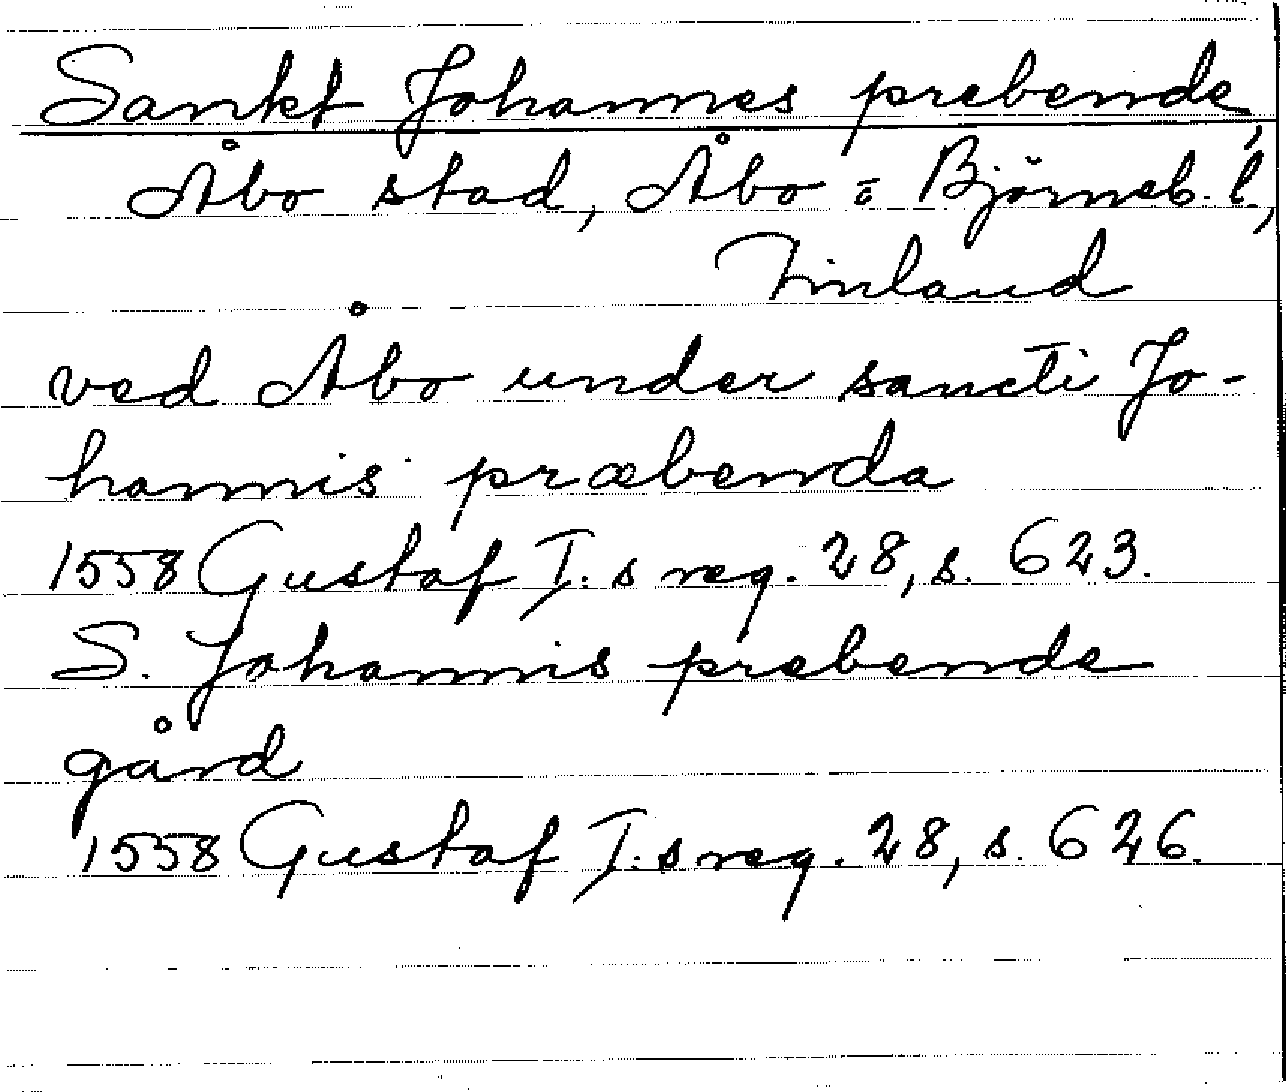 Sankt Johannes prebende,
Åbo stad, Åbo o Björneb. l.,
Finland
ved Åbo under sancti Jo-
hannis præbenda
1558 Gustaf I.s reg. 28, s. 623.
S. Johannis prebende
gård
1558 Gustaf I.s reg. 28, s. 626.